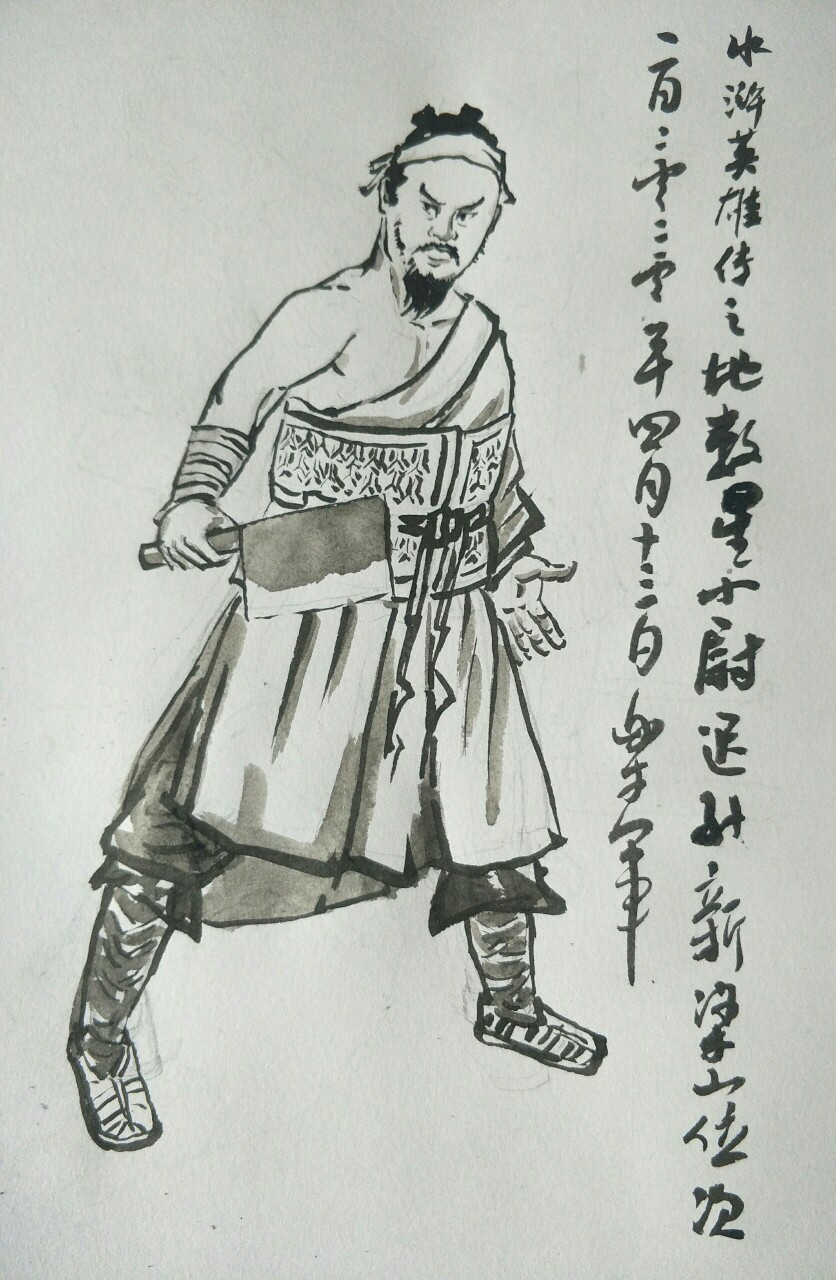 水浒英雄传之地数星小尉迟孙新梁山位次
一百二零二零年四月十三日